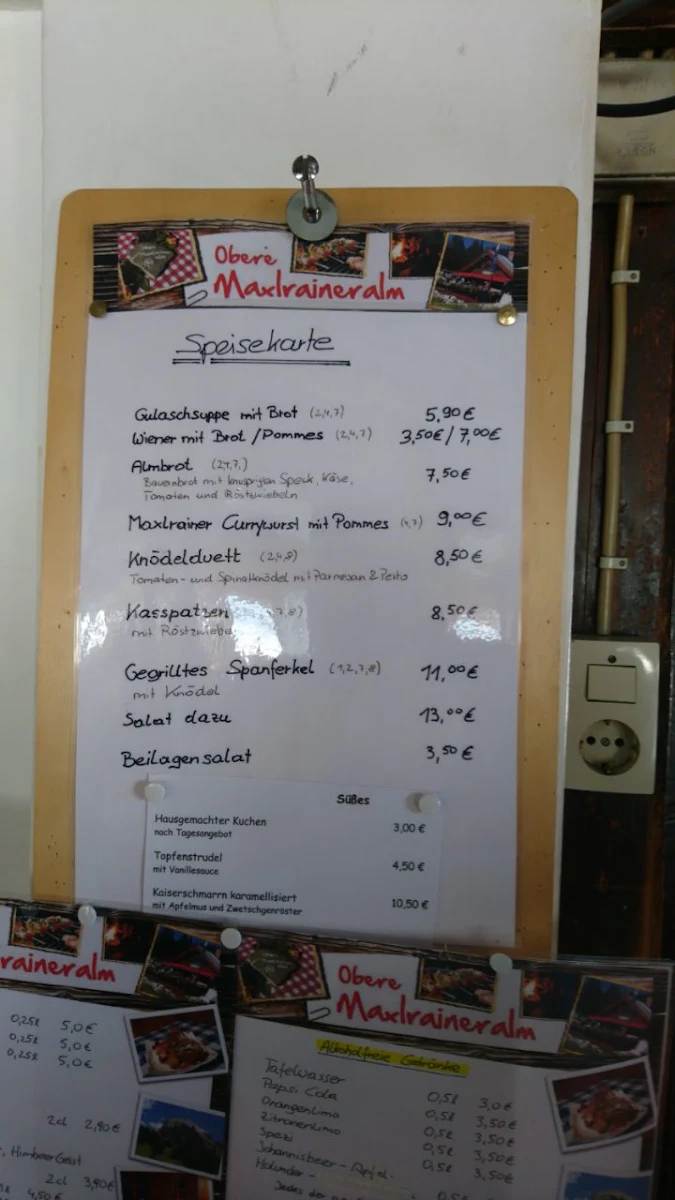 Obere
Maxlraineralm
Speisekarte
Gulaschsuppe mit Brot (2,4,7) 5,90€
Wiener mit Brot / Pommes (2,4,7) 3,50€ / 7,00€
Almbrot (2,4,7,) 7,50€
Bauernbrot mit knusprigen Speck, Käse,
Tomaten und Röstzwiebeln
Maxlrainer Currywurst mit Pommes (4,7) 9,00€
Knödelduett (2,4,8) 8,50€
Tomaten- und Spinatknödel mit Parmesan & Pesto
Kasspatzen 7,8) 8,50€
mit
Gegrilltes Spanferkel (1,2,7,8) 11,00€
mit Knödel
Salat dazu 13,00€
Beilagensalat 3,50€
Süßes
Hausgemachter Kuchen 3,00 €
nach Tagesangebot
Topfenstrudel 4,50€
mit Vanillesauce
Kaiserschmarrn karamellisiert 10,50€
mit Apfelmus und Zwetschgenröster
raineralm
0,25l 5,0€
0,25l 5,0€
0,25l 5,0€
2cl 2,90€
, Himbeergeist
2cl 3,90€
4,50€
Obere
Maxlraineralm
Alkoholfreie Getränke
Tafelwasser 0,5l 3,0€
Pepsi Cola 0,5l 3,50€
Orangenlimo 0,5l 3,50€
Zitronenlimo 0,5l 3,50€
Spezi 0,5l 3,50€
Johannisbeer- Apfel-
Holunder- 0,5l